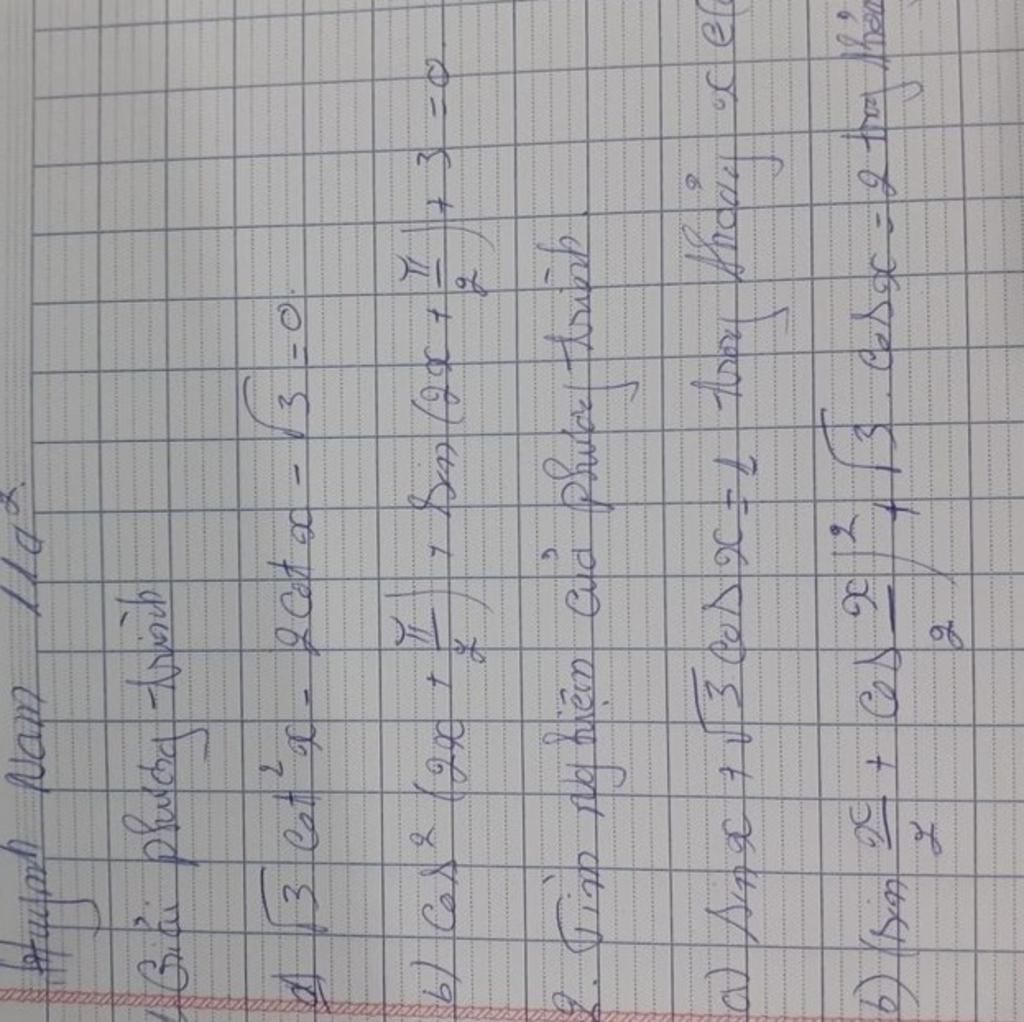 Huỳnh Nam 11a2
Giải phương trình
a) √3 cot² x - 2 cot x - √3 = 0.
b) cos² (2x + π/2) + sin (2x + π/2) + 3 = 0.
2. Tìm nghiệm của phương trình
a) sin x + √3 cos x = 1 trong khoảng x ∈ (
b) (sin x/2 + cos x/2)² + √3. cos x = 2 trong